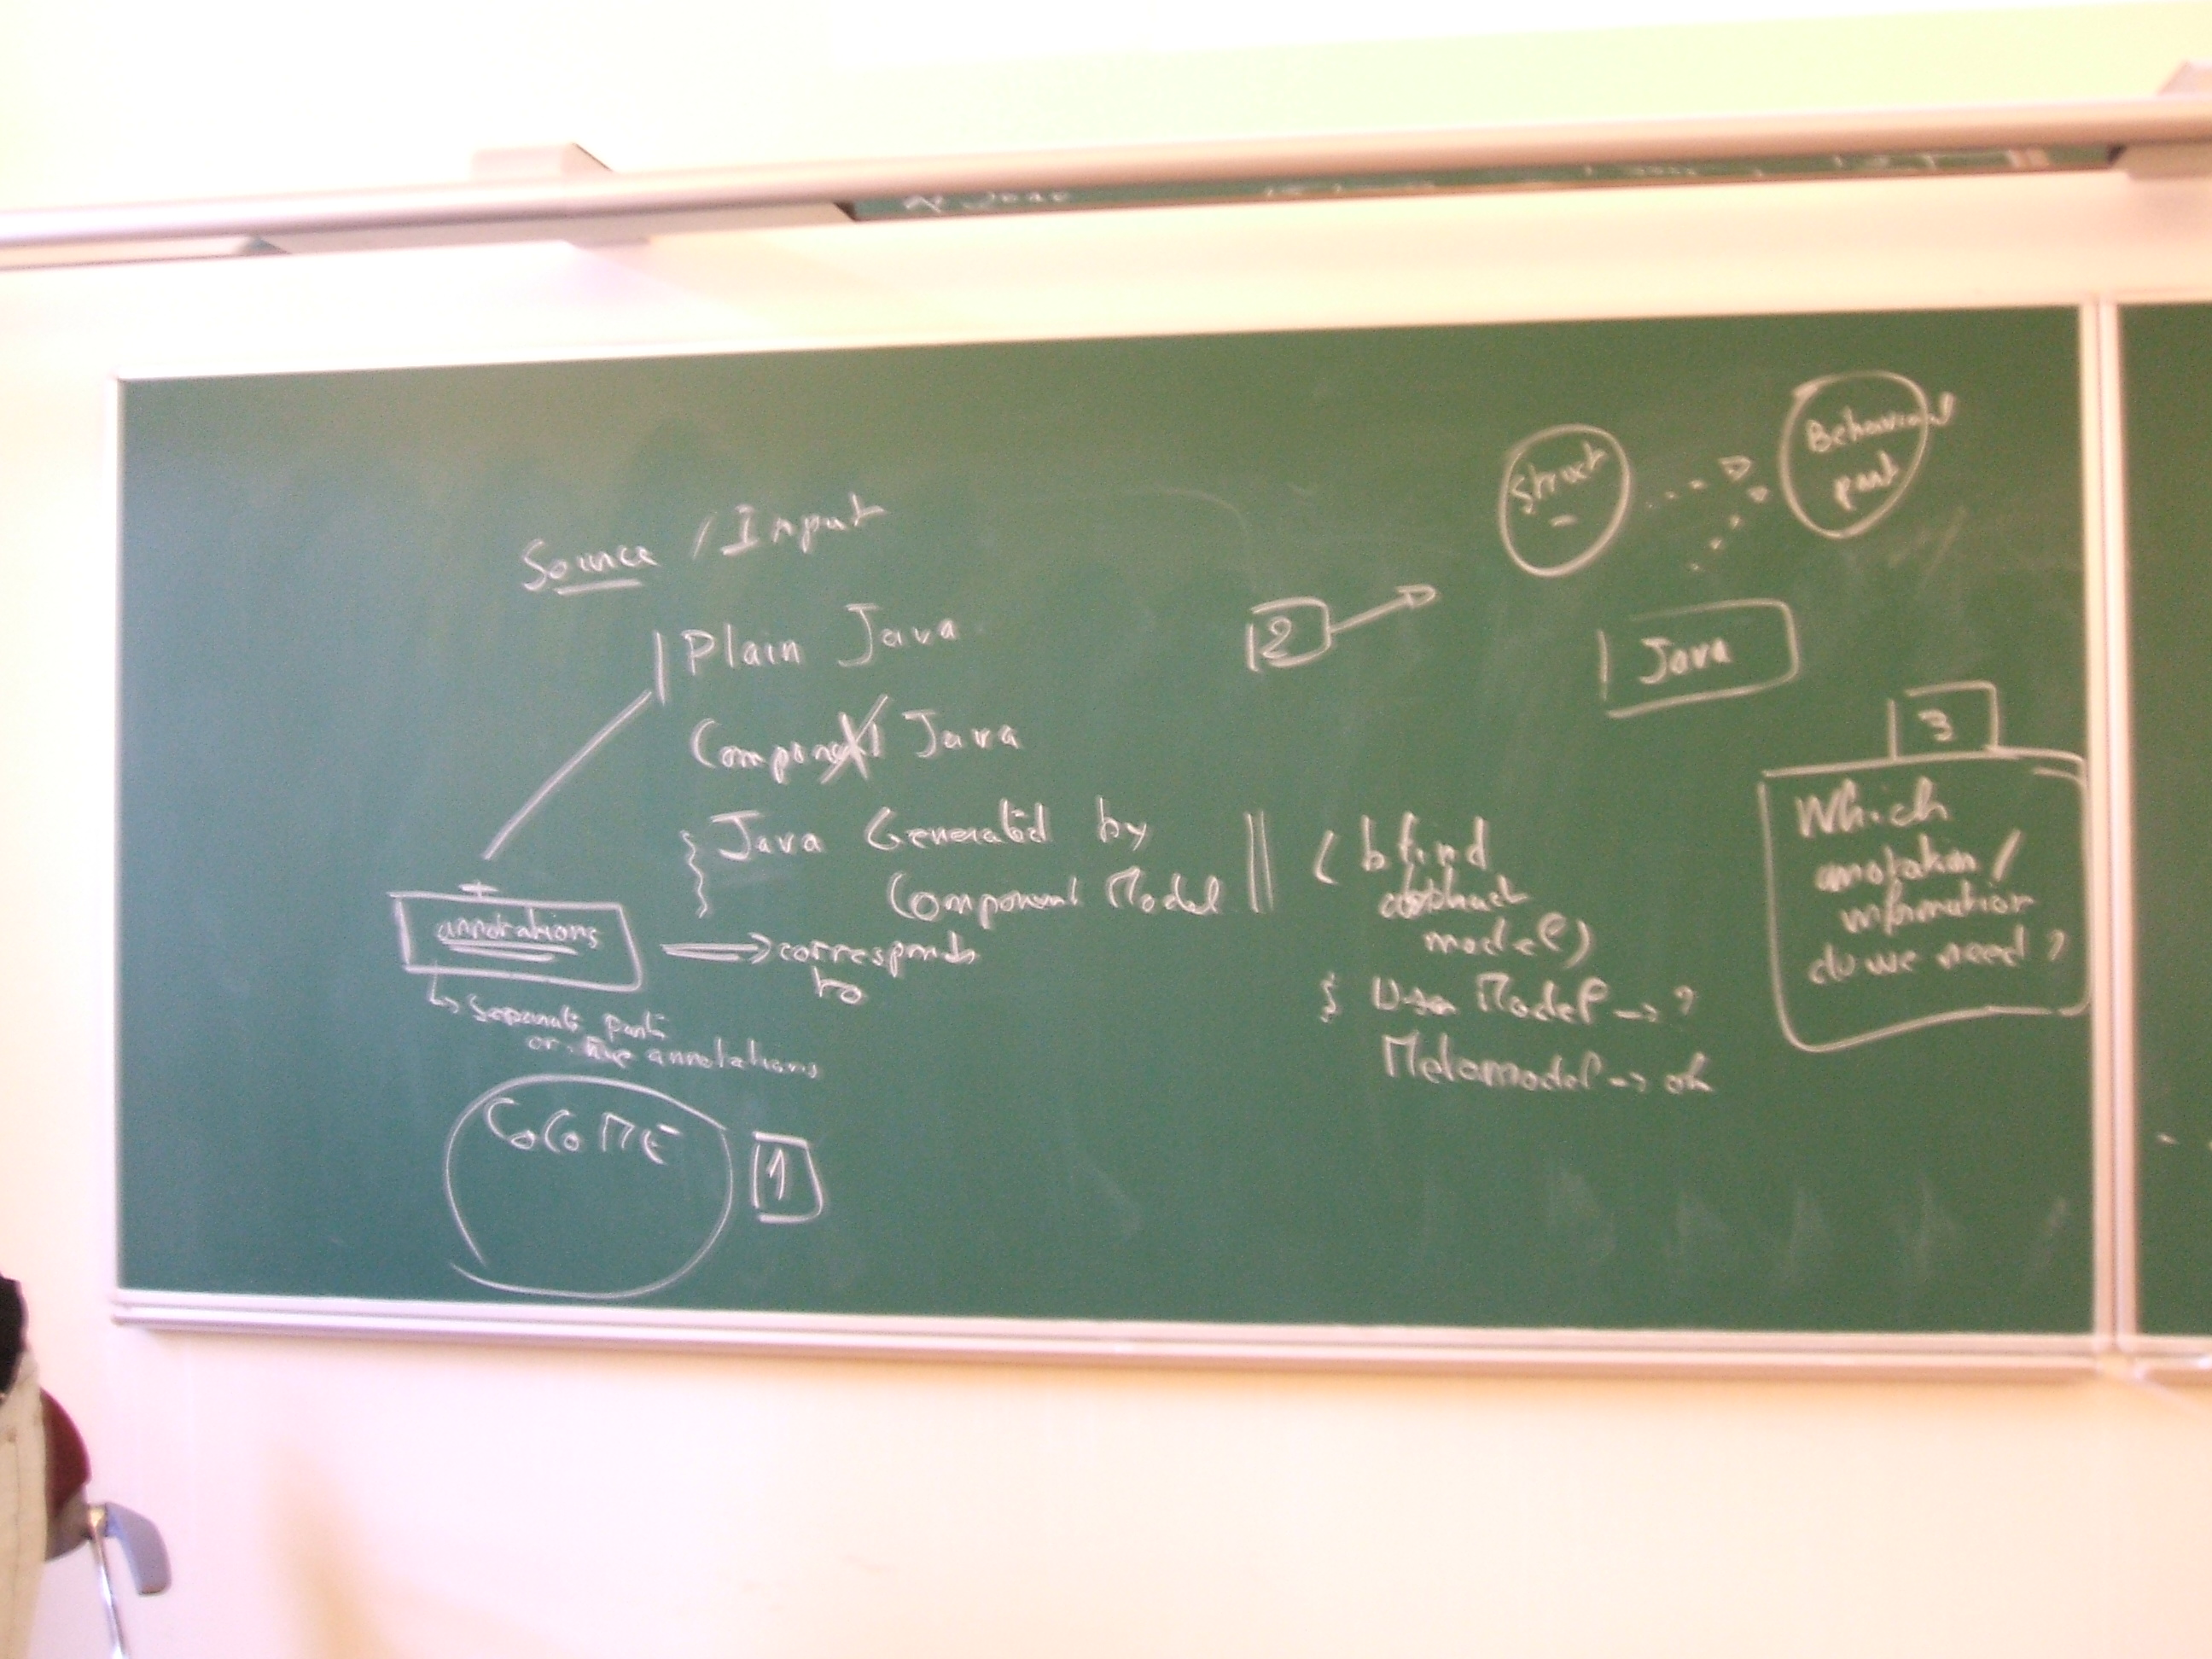 Source / Input
Plain Java
Component Java
Java Generated by
Component Model
+
annotations
corresponds
to
↳ separate part
or annotations
CoCoME
1
2
Struct
Behavioral
part
Java
( to find
abstract
model)
User Model -> ?
Metamodel -> ok
3
Which
anotation /
information
do we need ?